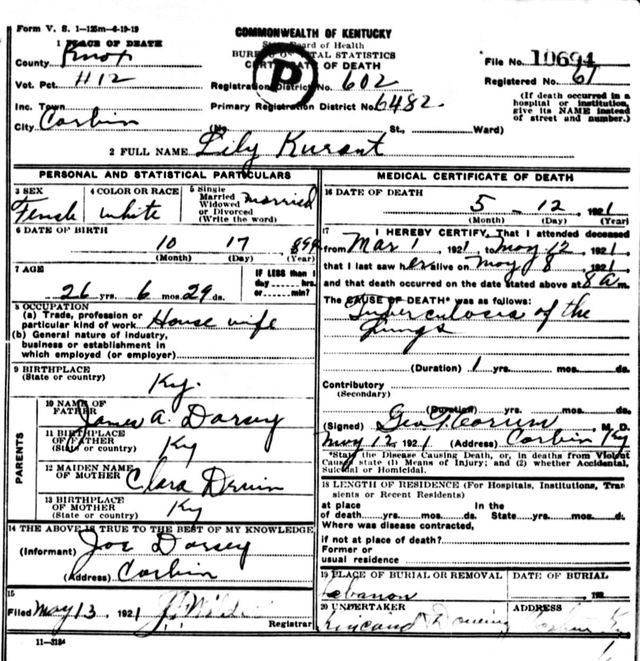 Form V. S. 1-125m-6-19-19
COMMONWEALTH OF KENTUCKY
State Board of Health
BUREAU OF VITAL STATISTICS
CERTIFICATE OF DEATH
P
1 PLACE OF DEATH
County Knox
Vot. Pct. H12
Inc. Town
City Corbin
Registration District No. 602
Primary Registration District No. 6482
(No. St., Ward)
File No. 10694
Registered No. 61
(If death occurred in a
hospital or institution,
give its NAME instead
of street and number.)
2 FULL NAME Lily Kurant
PERSONAL AND STATISTICAL PARTICULARS
3 SEX
Female
4 COLOR OR RACE
White
5 Single
Married
Widowed
or Divorced
(Write the word)
Married
6 DATE OF BIRTH
10 17
(Month) (Day) (Year)
7 AGE
26 yrs. 6 mos. 29 ds.
IF LESS than 1
day hrs.
or min?
8 OCCUPATION
(a) Trade, profession or
particular kind of work House wife
(b) General nature of industry,
business or establishment in
which employed (or employer)
9 BIRTHPLACE
(State or country) Ky.
PARENTS
10 NAME OF
FATHER James A. Dorsey
11 BIRTHPLACE
OF FATHER
(State or country) Ky
12 MAIDEN NAME
OF MOTHER Clara
13 BIRTHPLACE
OF MOTHER
(State or country) Ky
14 THE ABOVE IS TRUE TO THE BEST OF MY KNOWLEDGE
(Informant) Joe Dorsey
(Address) Corbin
15
Filed May 13, 1921
Registrar
11-3184
MEDICAL CERTIFICATE OF DEATH
16 DATE OF DEATH
5 - 12, 1921
(Month) (Day) (Year)
17 I HEREBY CERTIFY, That I attended deceased
from Mar 1, 1921, to May 12, 1921,
that I last saw her alive on May 8, 1921,
and that death occurred on the date stated above at 8 am.
The CAUSE OF DEATH* was as follows:
Tuberculosis of the
Lungs
(Duration) 1 yrs. mos. ds.
Contributory
(Secondary)
(Duration) yrs. mos. ds.
(Signed) Geo. M. D.
May 12, 1921 (Address) Corbin Ky
*State the Disease Causing Death, or, in deaths from Violent
Causes state (1) Means of Injury; and (2) whether Accidental,
Suicidal or Homicidal.
18 LENGTH OF RESIDENCE (For Hospitals, Institutions, Tran
sients or Recent Residents)
at place In the
of death yrs. mos. ds. State yrs. mos. ds.
Where was disease contracted,
if not at place of death?
Former or
usual residence
19 PLACE OF BURIAL OR REMOVAL DATE OF BURIAL
Lebanon 192
20 UNDERTAKER ADDRESS